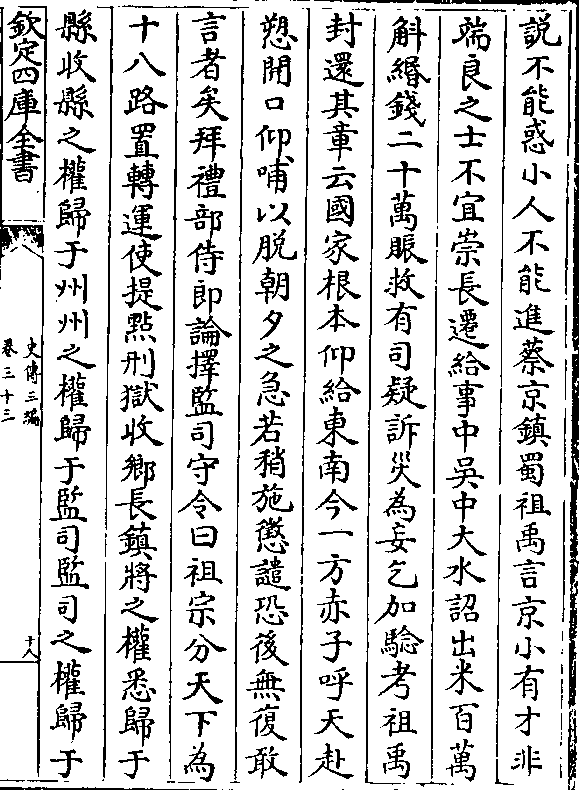 說不能惑小人不能進蔡京鎮蜀祖禹言京小有才非
端良之士不宜崇長遷給事中吳中大水詔出米百萬
斛緡錢二十萬賑救有司疑訴災為妄乞加驗考祖禹
封還其章云國家根本仰給東南今一方赤子呼天赴
愬開口仰哺以脫朝夕之急若稍施懲譴恐後無復敢
言者矣拜禮部侍郎論擇監司守令曰祖宗分天下為
十八路置轉運使提點刑獄收鄉長鎮將之權悉歸于
縣收縣之權歸于州州之權歸于監司監司之權歸于
欽定四庫全書
史傳三編
卷三十三
十八